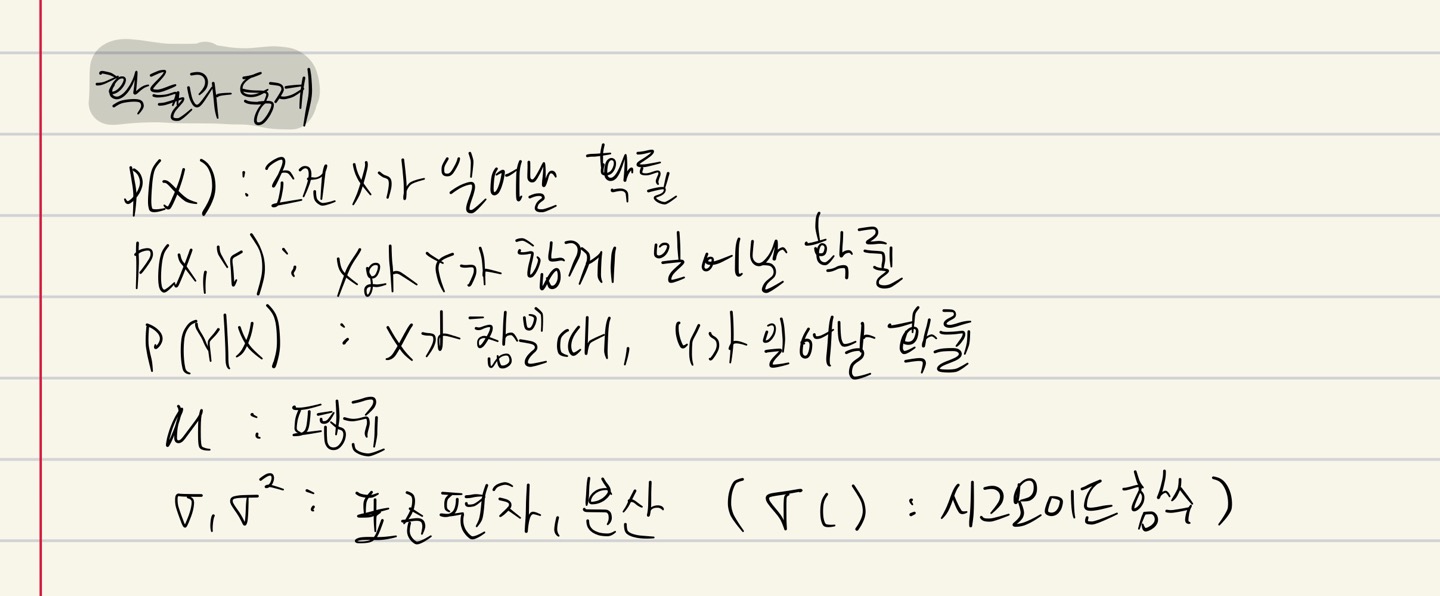 확률과 통계
P(X) : 조건 X가 일어날 확률
P(X,Y) : X와 Y가 함께 일어날 확률
P(Y|X) : X가 참일 때, Y가 일어날 확률
μ : 평균
σ, σ² : 표준편차, 분산 (σ() : 시그모이드 함수)